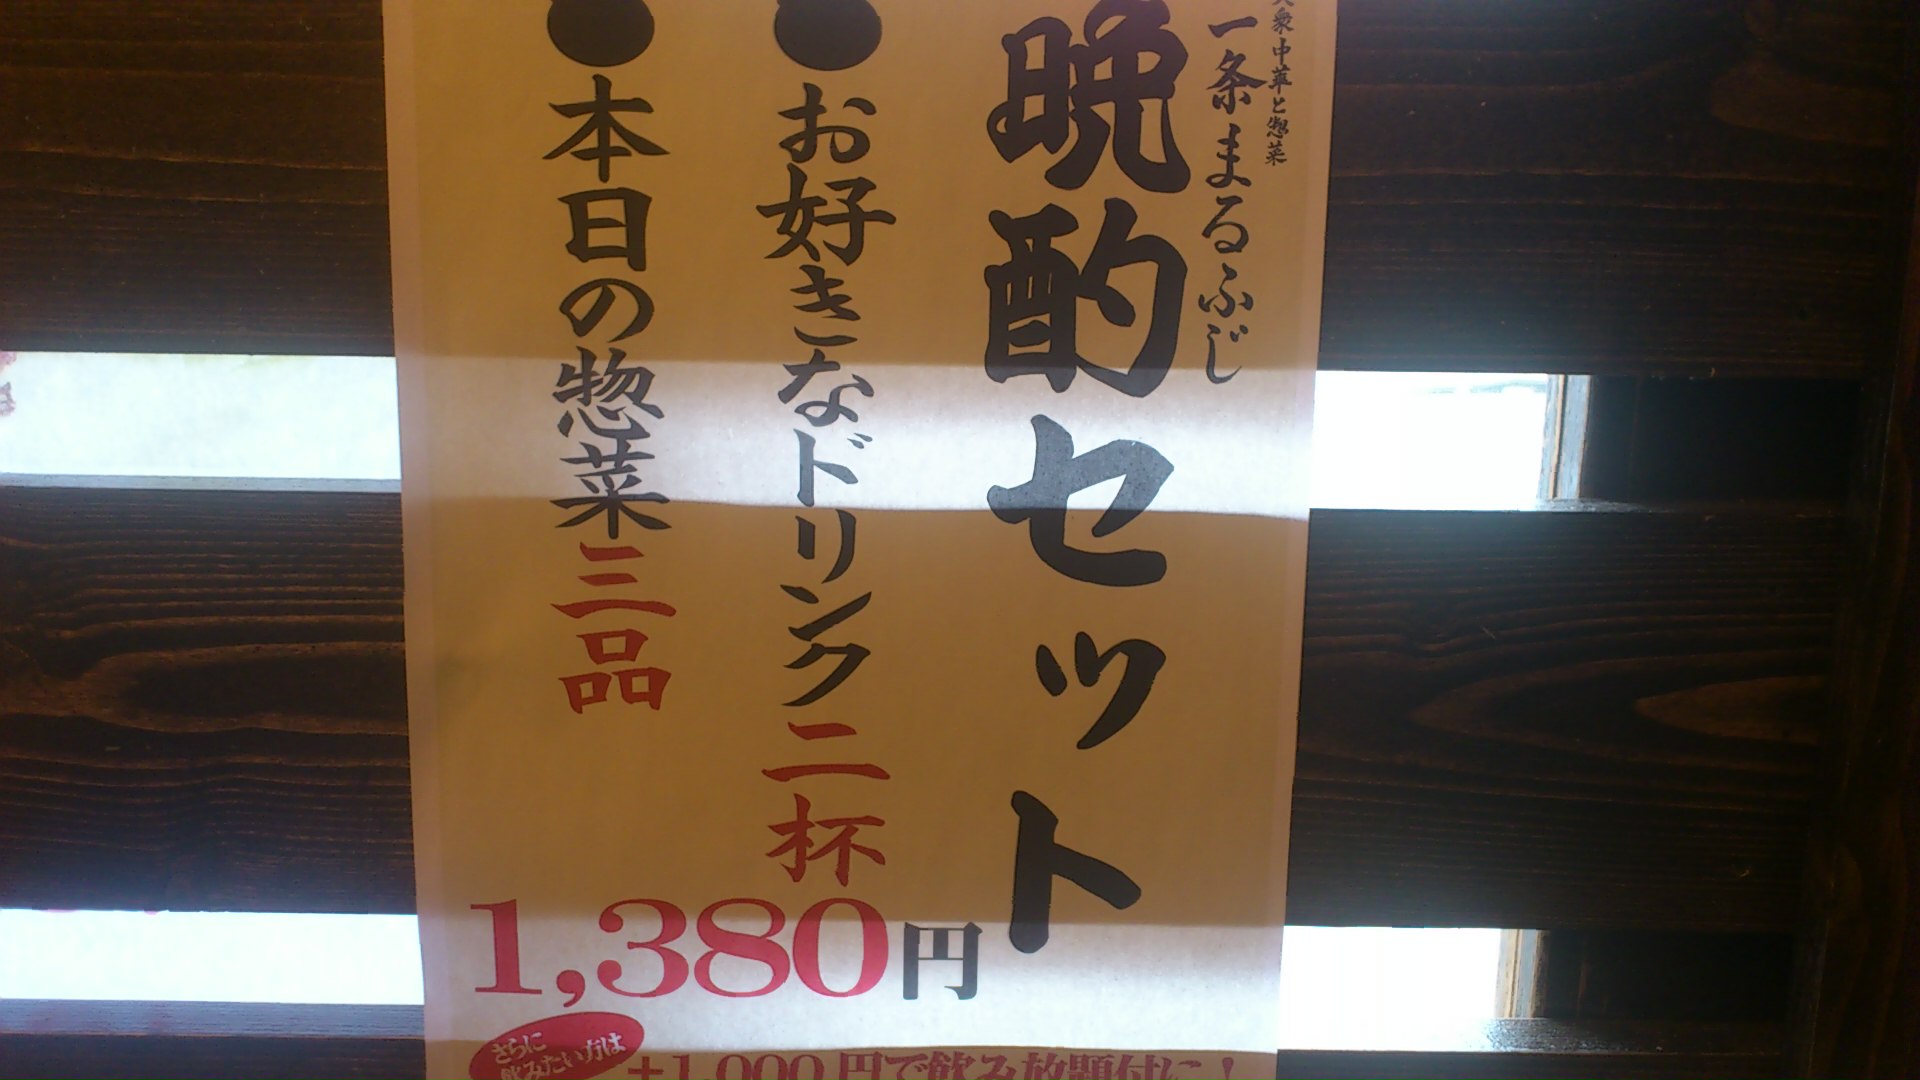 大衆中華と惣菜
一条まるふじ
晩酌セット
●お好きなドリンク二杯
●本日の惣菜三品
1,380円
さらに
飲みたい方は
+1,000円で飲み放題付に!